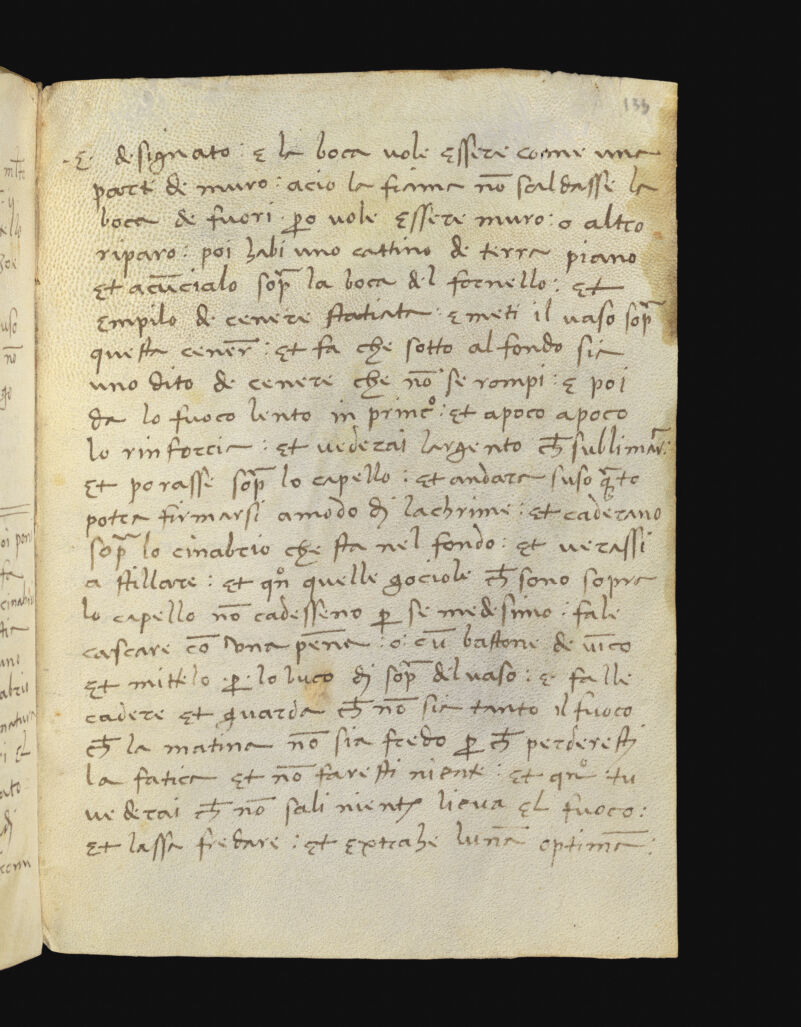 133
·ę· designato: ę la boca vole ęssere come una
parte de muro: acio la fiama nõ scaldasse la
boca de fuori· ꝑo vole ęssere muro: o altro
riparo: poi habi uno cattino de terra piano
ęt acũcialo sop̃ la boca del fornello: ęt
ęmpilo de cenere statiata: ę meti il vaso sop̃
questa cener̃: ęt fa che sotto al fondo sia
uno dito de cenere che nõ se rompi: ę poi
da lo fuoco lento in princº: ęt apoco apoco
lo rinforcia: ęt vederai largento ch̃ sublimar̃:
ęt porasse sop̃ lo capello: ęt andara suso q̃to
potra firmarsi amodo di lachrime: ęt caderano
sop̃ lo cinabrio che sta nel fondo: ęt verassi
a stillare: ęt qñº quelle gociole ch̃ sono sopra
lo capello nõ cadesseno ꝑ se medesimo: fale
cascare cõ una pẽna: o cũ bastone de
ęt mittelo ·ꝑ· lo luco di sop̃ del vaso: ę falle
cadere ęt guarda ch̃ nõ sia tanto il fuoco
ch̃ la matina nõ sia fredo ꝑ ch̃ perderesti
la fatica ęt nõ faresti niente: ęt qñº tu
vederai ch̃ nõ sali niente lieva ęl fuoco:
ęt lassa fredare: ęt ęxtrahe lunã optimã: